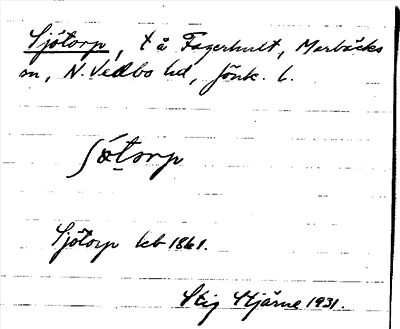 Sjötorp, t å Fagerhult, Marbäcks
sn, N. Vedbo hd, Jönk. l.
ʃötorp
Sjötorp kb 1861.
Stig Stjärne 1931.